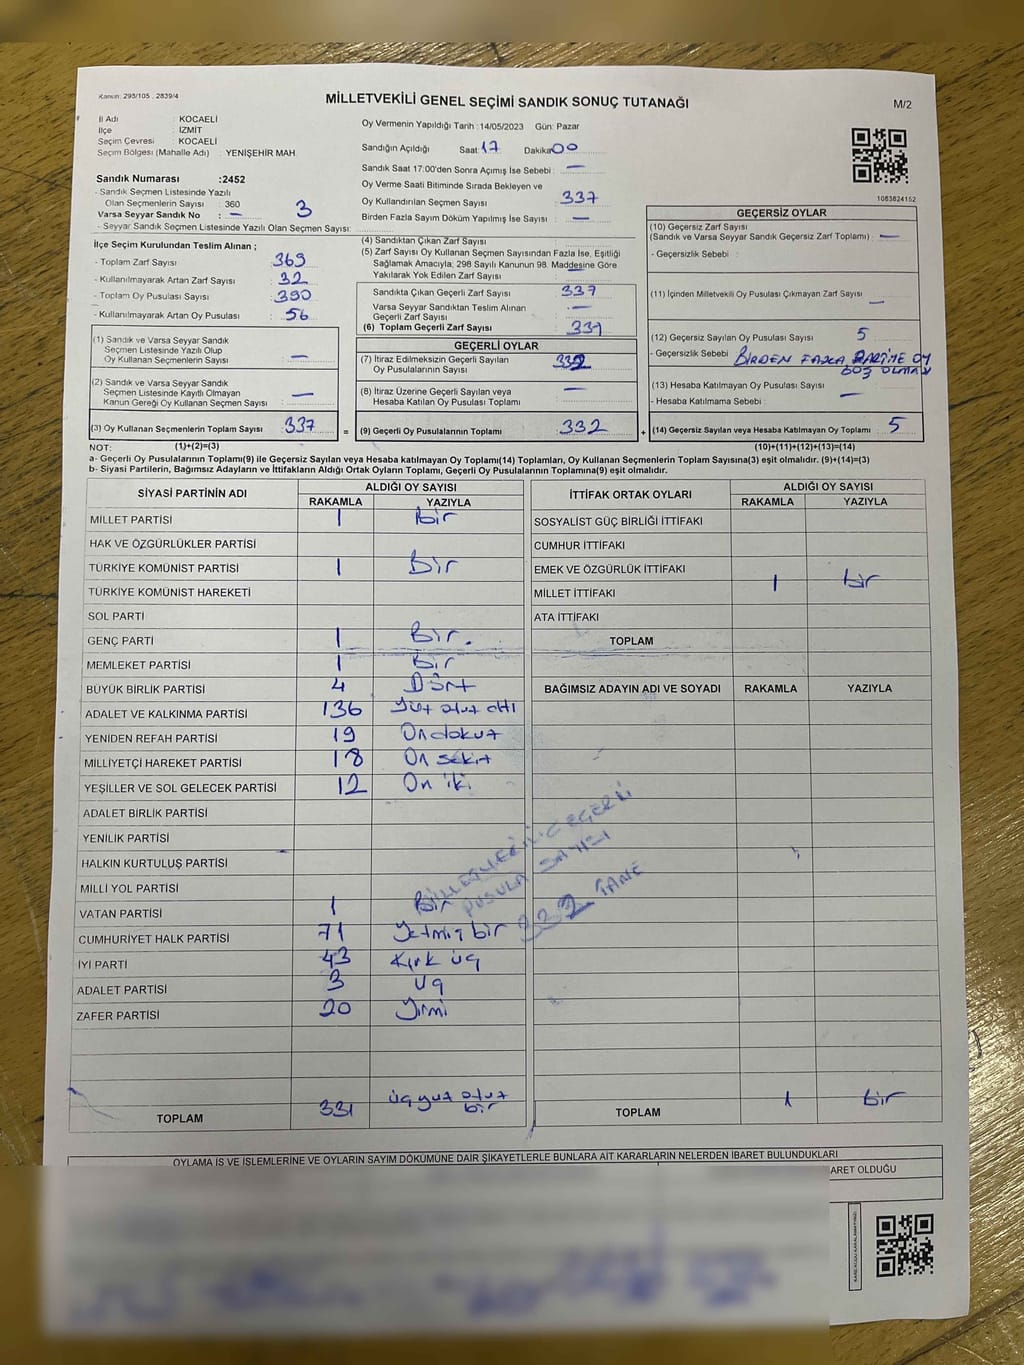 Kanun: 298/105 , 2839/4
MİLLETVEKİLİ GENEL SEÇİMİ SANDIK SONUÇ TUTANAĞI
M/2
İl Adı : KOCAELİ
İlçe : İZMİT
Seçim Çevresi : KOCAELİ
Seçim Bölgesi (Mahalle Adı) : YENİŞEHİR MAH.
Sandık Numarası :2452
- Sandık Seçmen Listesinde Yazılı
Olan Seçmenlerin Sayısı : 360
Varsa Seyyar Sandık No : – 3
- Seyyar Sandık Seçmen Listesinde Yazılı Olan Seçmen Sayısı:
Oy Vermenin Yapıldığı Tarih :14/05/2023 Gün: Pazar
Sandığın Açıldığı Saat: 17 Dakika: 00
Sandık Saat 17:00'den Sonra Açımış İse Sebebi : –
Oy Verme Saati Bitiminde Sırada Bekleyen ve
Oy Kullandırılan Seçmen Sayısı 337
Birden Fazla Sayım Döküm Yapılmış İse Sayısı : –
1083824152
İlçe Seçim Kurulundan Teslim Alınan ;
- Toplam Zarf Sayısı : 369
- Kullanılmayarak Artan Zarf Sayısı : 32
- Toplam Oy Pusulası Sayısı : 390
- Kullanılmayarak Artan Oy Pusulası : 56
(1) Sandık ve Varsa Seyyar Sandık
Seçmen Listesinde Yazılı Olup
Oy Kullanan Seçmenlerin Sayısı : –
(2) Sandık ve Varsa Seyyar Sandık
Seçmen Listesinde Kayıtlı Olmayan
Kanun Gereği Oy Kullanan Seçmen Sayısı : –
(3) Oy Kullanan Seçmenlerin Toplam Sayısı : 337
(4) Sandıktan Çıkan Zarf Sayısı :
(5) Zarf Sayısı Oy Kullanan Seçmen Sayısından Fazla İse, Eşitliği
Sağlamak Amacıyla; 298 Sayılı Kanunun 98. Maddesine Göre
Yakılarak Yok Edilen Zarf Sayısı : –
Sandıkta Çıkan Geçerli Zarf Sayısı : 337
Varsa Seyyar Sandıktan Teslim Alınan
Geçerli Zarf Sayısı : –
(6) Toplam Geçerli Zarf Sayısı : 337
GEÇERLİ OYLAR
(7) İtiraz Edilmeksizin Geçerli Sayılan
Oy Pusulalarının Sayısı : 332
(8) İtiraz Üzerine Geçerli Sayılan veya
Hesaba Katılan Oy Pusulası Toplamı : –
= (9) Geçerli Oy Pusulalarının Toplamı : 332
GEÇERSİZ OYLAR
(10) Geçersiz Zarf Sayısı
(Sandık ve Varsa Seyyar Sandık Geçersiz Zarf Toplamı) : –
- Geçersizlik Sebebi :
(11) İçinden Milletvekili Oy Pusulası Çıkmayan Zarf Sayısı : –
(12) Geçersiz Sayılan Oy Pusulası Sayısı : 5
- Geçersizlik Sebebi : BİRDEN FAZLA PARTİYE OY
BOŞ OLMASI
(13) Hesaba Katılmayan Oy Pusulası Sayısı : –
- Hesaba Katılmama Sebebi :
+ (14) Geçersiz Sayılan veya Hesaba Katılmayan Oy Toplamı : 5
NOT: (1)+(2)=(3) (10)+(11)+(12)+(13)=(14)
a- Geçerli Oy Pusulalarının Toplamı(9) ile Geçersiz Sayılan veya Hesaba Katılmayan Oy Toplamı(14) Toplamları, Oy Kullanan Seçmenlerin Toplam Sayısına(3) eşit olmalıdır. (9)+(14)=(3)
b- Siyasi Partilerin, Bağımsız Adayların ve İttifakların Aldığı Ortak Oyların Toplamı, Geçerli Oy Pusulalarının Toplamına(9) eşit olmalıdır.
SİYASİ PARTİNİN ADI ALDIĞI OY SAYISI
RAKAMLA YAZIYLA
MİLLET PARTİSİ 1 Bir
HAK VE ÖZGÜRLÜKLER PARTİSİ
TÜRKİYE KOMÜNİST PARTİSİ 1 Bir
TÜRKİYE KOMÜNİST HAREKETİ
SOL PARTİ
GENÇ PARTİ 1 Bir.
MEMLEKET PARTİSİ 1 Bir
BÜYÜK BİRLİK PARTİSİ 4 Dört
ADALET VE KALKINMA PARTİSİ 136 Yüz otuz altı
YENİDEN REFAH PARTİSİ 19 On dokuz
MİLLİYETÇİ HAREKET PARTİSİ 18 On sekiz
YEŞİLLER VE SOL GELECEK PARTİSİ 12 On iki
ADALET BİRLİK PARTİSİ
YENİLİK PARTİSİ
HALKIN KURTULUŞ PARTİSİ
MİLLİ YOL PARTİSİ
VATAN PARTİSİ 1 Bir
CUMHURİYET HALK PARTİSİ 71 Yetmiş bir
İYİ PARTİ 43 Kırk üç
ADALET PARTİSİ 3 Üç
ZAFER PARTİSİ 20 Yirmi
TOPLAM 331 üçyüz otuz
bir
İTTİFAK ORTAK OYLARI ALDIĞI OY SAYISI
RAKAMLA YAZIYLA
SOSYALİST GÜÇ BİRLİĞİ İTTİFAKI
CUMHUR İTTİFAKI
EMEK VE ÖZGÜRLÜK İTTİFAKI
MİLLET İTTİFAKI 1 bir
ATA İTTİFAKI
TOPLAM
BAĞIMSIZ ADAYIN ADI VE SOYADI RAKAMLA YAZIYLA
PUSULA SAYISI
332 TANE
TOPLAM 1 bir
OYLAMA İŞ VE İŞLEMLERİNE VE OYLARIN SAYIM DÖKÜMÜNE DAİR ŞİKAYETLERLE BUNLARA AİT KARARLARIN NELERDEN İBARET BULUNDUKLARI
ARET OLDUĞU